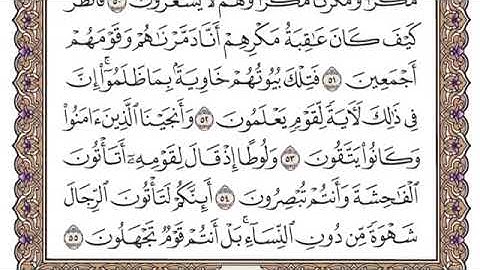 مَكْرًا وَمَكَرْنَا مَكْرًا وَهُمْ لَا يَشْعُرُونَ ٥٠ فَٱنظُرْ
كَيْفَ كَانَ عَٰقِبَةُ مَكْرِهِمْ أَنَّا دَمَّرْنَٰهُمْ وَقَوْمَهُمْ
أَجْمَعِينَ ٥١ فَتِلْكَ بُيُوتُهُمْ خَاوِيَةًۢ بِمَا ظَلَمُوٓا۟ۗ إِنَّ
فِى ذَٰلِكَ لَءَايَةً لِّقَوْمٍ يَعْلَمُونَ ٥٢ وَأَنجَيْنَا ٱلَّذِينَ ءَامَنُوا۟
وَكَانُوا۟ يَتَّقُونَ ٥٣ وَلُوطًا إِذْ قَالَ لِقَوْمِهِۦٓ أَتَأْتُونَ
ٱلْفَٰحِشَةَ وَأَنتُمْ تُبْصِرُونَ ٥٤ أَئِنَّكُمْ لَتَأْتُونَ ٱلرِّجَالَ
شَهْوَةً مِّن دُونِ ٱلنِّسَآءِۚ بَلْ أَنتُمْ قَوْمٌ تَجْهَلُونَ ٥٥